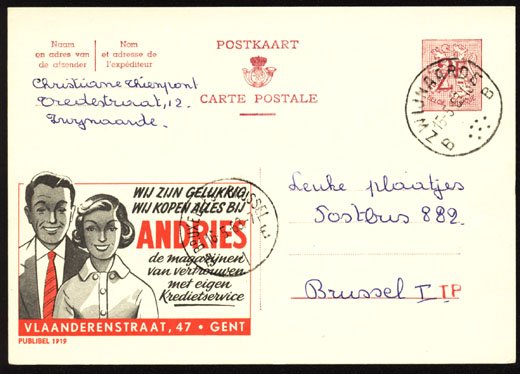 Naam
en adres van
de afzender
Nom
et adresse de
l'expéditeur
POSTKAART
CARTE POSTALE
Christiane Thienpont
Vredestraat, 12.
Zwijnaarde.
ZWIJNAARDE
B B
WIJ ZIJN GELUKKIG
WIJ KOPEN ALLES BIJ
ANDRIES
de magazijnen
van vertrouwen
met eigen
Kredietservice
VLAANDERENSTRAAT, 47 • GENT
PUBLIBEL 1919
Leuke plaatjes
Postbus 882.
Brussel I IP